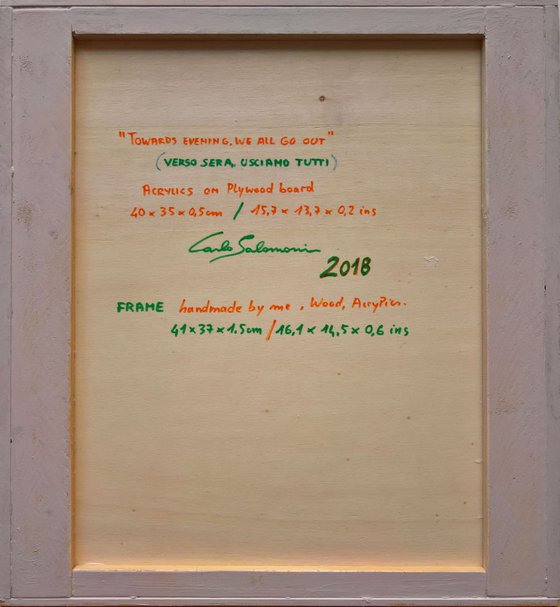 "TOWARDS EVENING, WE ALL GO OUT"
(VERSO SERA, USCIAMO TUTTI)
ACRYLICS on Plywood board
40 x 35 x 0,5 cm / 15,7 x 13,7 x 0,2 ins
Carlo Salomoni
2018
FRAME handmade by me, Wood, Acrylics.
41 x 37 x 1.5 cm / 16,1 x 14,5 x 0,6 ins